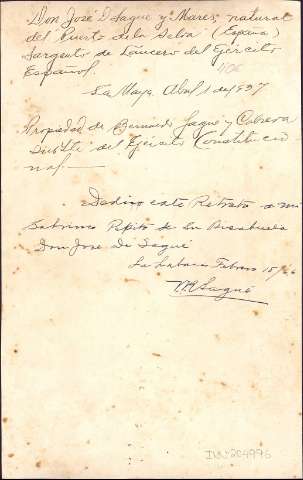 Don José D. Sagué y Mares, natural
del Puerto de la Selva (España)
Sargento de Lancero del Ejército
Español.
La Maya, Abril 1 de 1937
Propiedad de Bernardo Sagué y Cabrera
del Ejército Constitucio
nal.
Dedico este Retrato a mi
Sobrino Pepito de su Bisabuelo
Don Jose D. Sagué
La Habana Febrero 15/
Sagué
204996